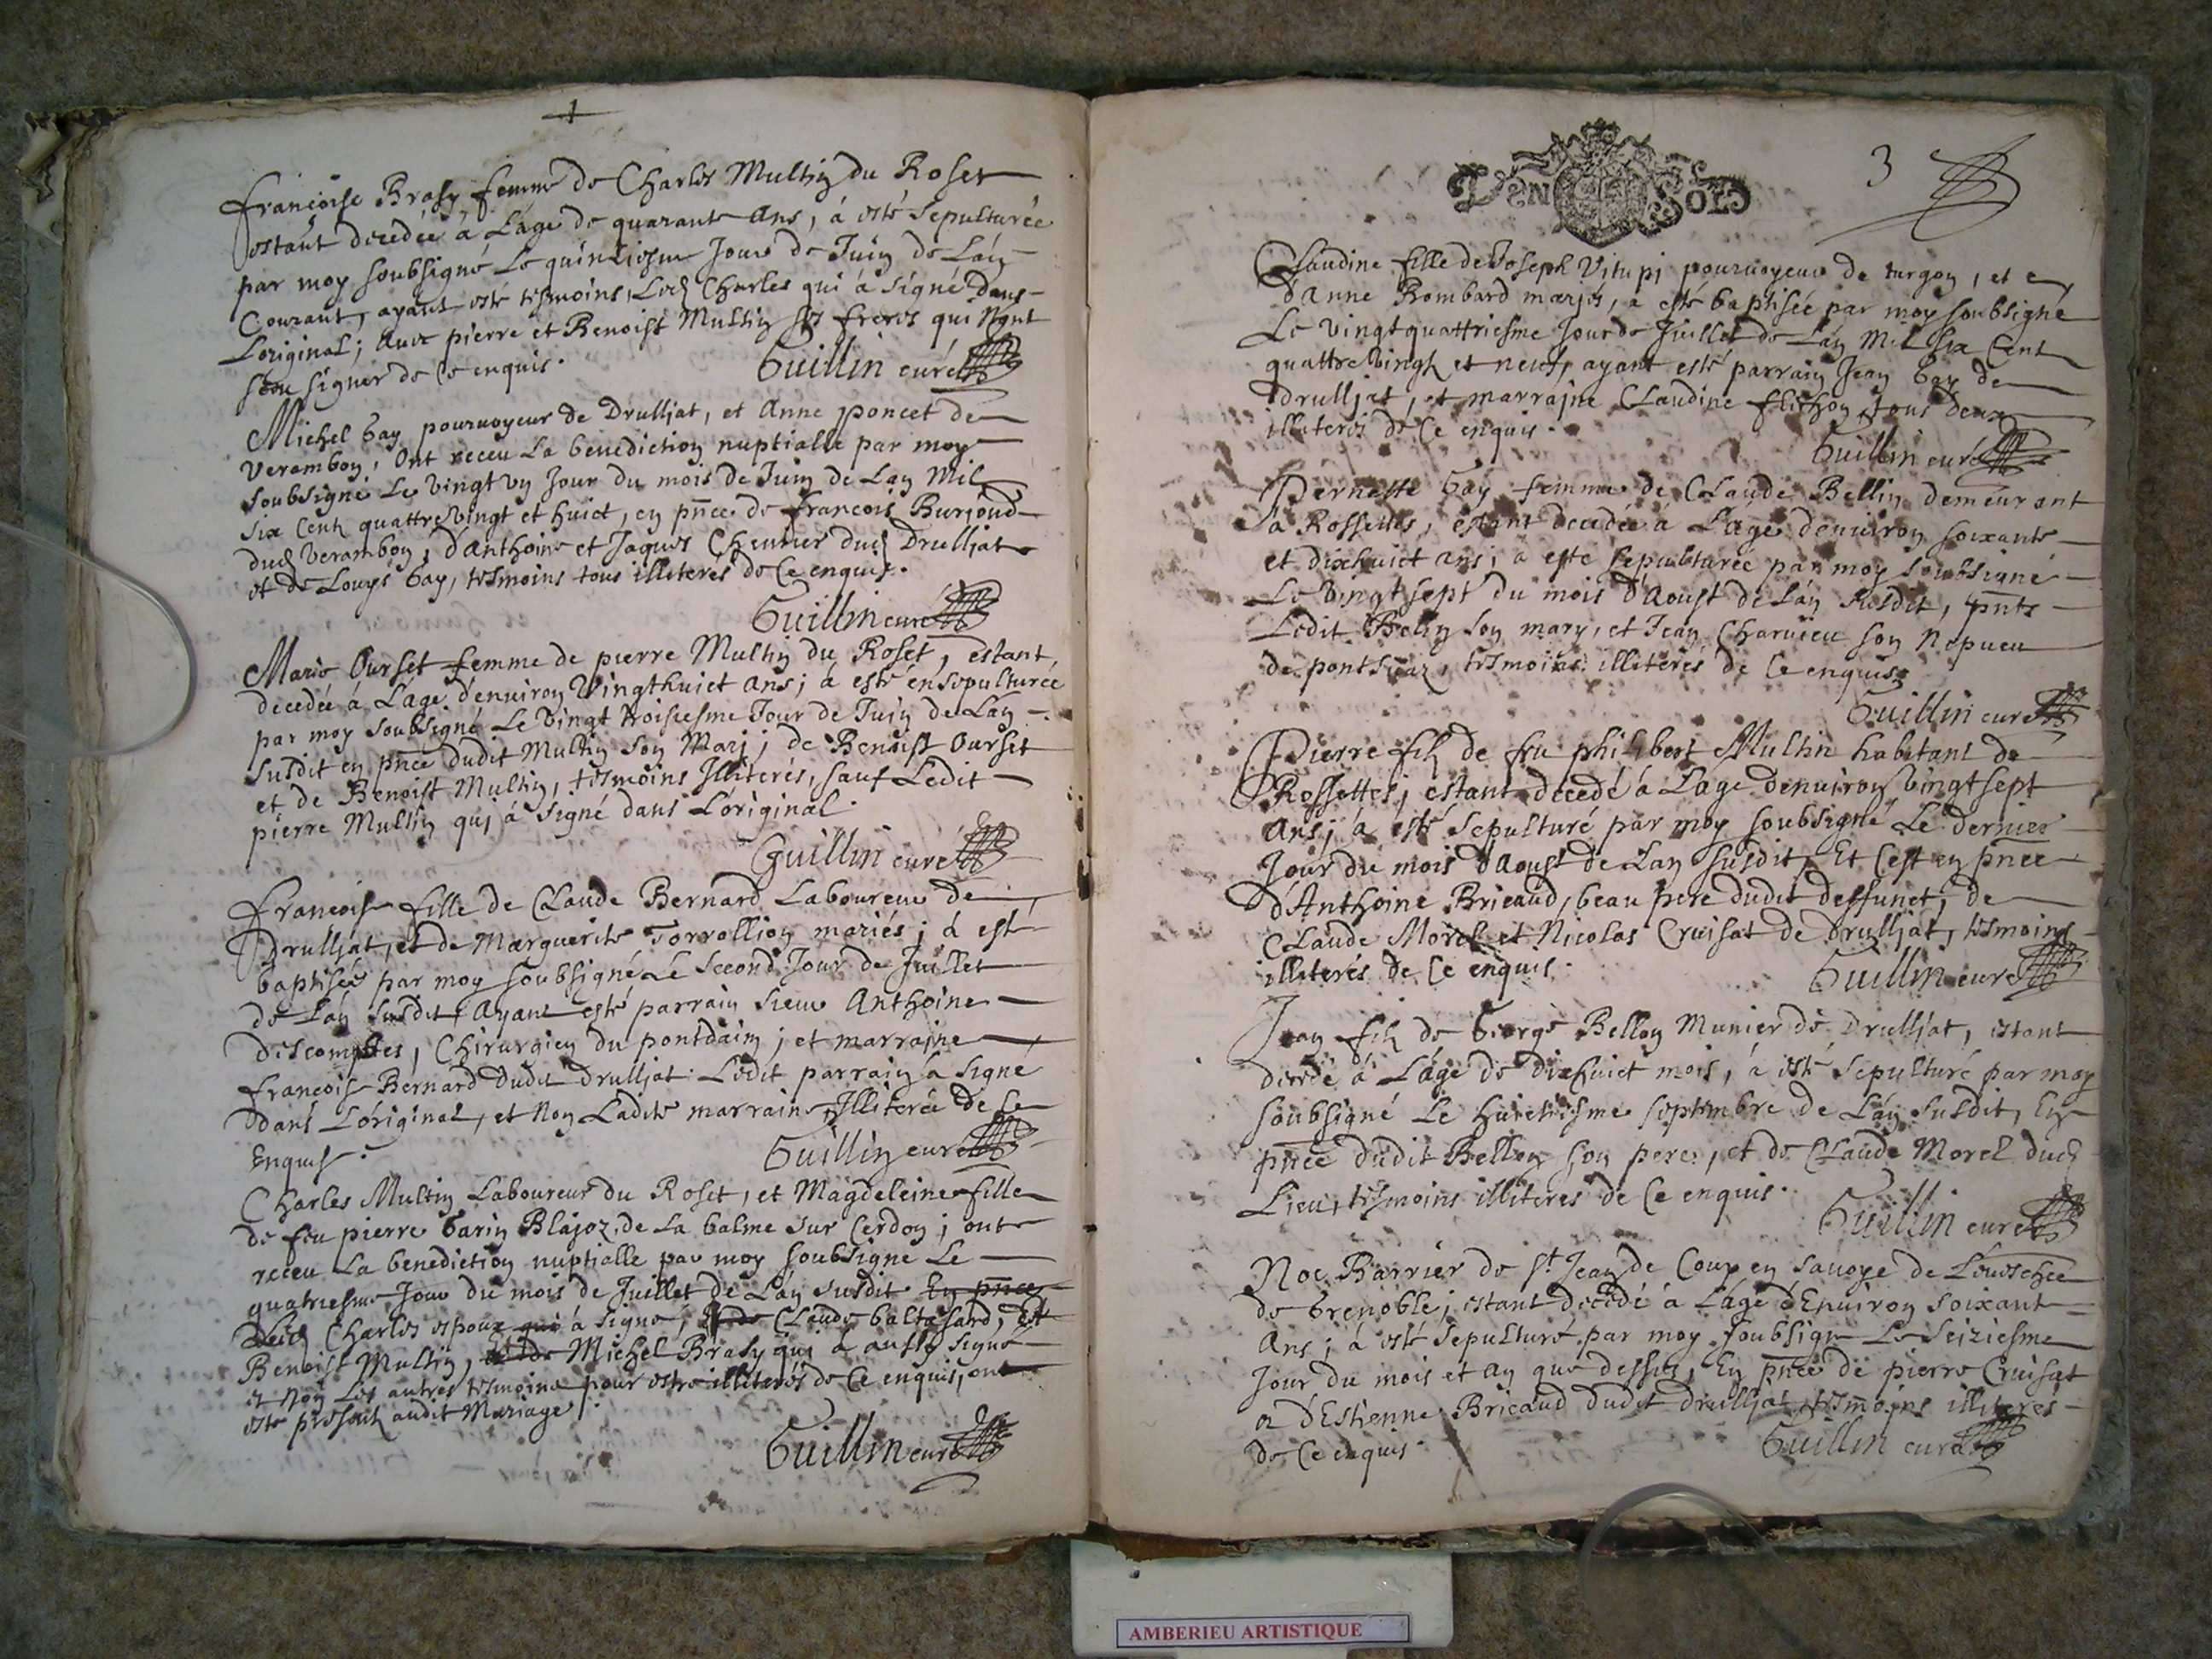 Francoise Brasy femme de Charles Multin du Roset
estant decedée à L'age de quarante ans, à esté sepulturée
par moy soubsigné Le quinziesme Jour de Juin de L'an
Courant, ayant esté tesmoins, Led Charles qui à signé dans
L'original; avec pierre et Benoist Multin ses freres qui N'ont
sceu signer de Ce enquis.
Guillin curé
Michel Gay pourvoyeur de Drulljat, et Anne poncet de
Verambon, Ont receu La benediction nuptialle par moy
soubsigné Le vingt un Jour du mois de Juin de L'an Mil
six Cent quattre Vingt et huict, en pnce de francois Burjoud
dud Verambon, d'Anthoine et Jaques Chevrier dud Drulljat
et de Louys Gay, tesmoins tous illiteres de Ce enquis.
Guillin curé
Marie Ourset femme de pierre Multin du Roset, estant
decedée à L'age d'environ Vingthuict ans; à esté ensepulturée
par moy soubsigné Le Vingt troisiesme Jour de Juin de L'an
susdit en pnce dudit Multin son Mari; de Benoist Ourset
et de Benoist Multin, tesmoins Jlliterés, sauf Ledit
pierre Multin qui à signé dans L'original.
Guillin curé
Francoise fille de Claude Bernard Laboureur de
Drulljat, et de Marguerite Torrollion mariés; à esté
baptisée par moy soubsigné Le second Jour de Juillet
de L'an susdit, Ayant esté parrain sieur Anthoine
Descomptes, Chirurgien du pontdain; et marrajne
francoise Bernard dudit drulljat. Ledit parrain a signé
dans L'original, et Non Ladite marraine, Jlliterée de Ce
Enquise.
Guillin curé
Charles Multin Laboureur du Roset, et Magdeleine fille
de feu pierre Garin Blajoz, de La balme sur Cerdon; ont
receu La benediction nuptialle par moy soubsigné Le
quatriesme Jour du mois de Juillet de L'an susdit En pnce
Led Charles espoux qui à signé, Claude baltasard, Et
Benoist Multin, et de Michel Brasy qui à aussy signé
et Non Les autres tesmoins pour estre illiterés de Ce enquis, ont
esté presents audit Mariage.
Guillin curé
DEN SOLS
3
Claudine fille de Joseph Vitupi pourvoyeur de turgon, et
d'Anne Rombard mariés, a esté baptisée par moy soubsigné
Le Vingt quattriesme Jour de Juillet de L'an Mil six Cent
quattre Vingt et neuf, ayant esté parrain Jean Gay de
drulljat, et marrajne Claudine flichon tous deux
illiterés de Ce enquis.
Guillin curé
Pernette Gay femme de Claude Bellin demeurant
à Rossettes, estant decedée à L'age d'environ soixante
et dixhuict ans; à esté sepulturée par moy soubsigné
Le Vingt sept du mois d'Aoust de L'an susdit, pnts
Ledit Belin son mary, et Jean Charvieu son Nepveu
de tesmoins illiterés de Ce enquis
Guillin curé
Pierre fils de feu philibert Multin habitant de
Rossettes; estant decedé à L'age d'environ Vingt sept
Ans; à esté sepulturé par moy soubsigné Le dernier
Jour du mois d'Aoust de L'an susdit, Et C'est en pnce
d'Anthoine Bricaud, beau pere dudit deffunct, de
Claude Morel et Nicolas Cruisat de drulljat, tesmoins
illiterés de Ce enquis.
Guillin curé
Jean fils de George Bellon Munier de Drulljat, estant
decedé à L'age de dixhuict mois, à esté sepulturé par moy
soubsigné Le huictiesme septembre de L'an susdit, En
pnce dudit Bellon son pere, et de Claude Morel dud
Lieu, tesmoins illiteres de Ce enquis.
Guillin curé
Noe Barrier de St Jean de Coup en savoye de L'evesché
de Grenoble; estant decedé à L'age d'Environ soixant
Ans; à esté sepulturé par moy soubsigne Le seiziesme
Jour du mois et an que dessus, En pnce de pierre Cruisat
et d'Estienne Bricaud dudit drulljat, tesmoins illiterés
de Ce enquis.
Guillin curé
AMBERIEU ARTISTIQUE